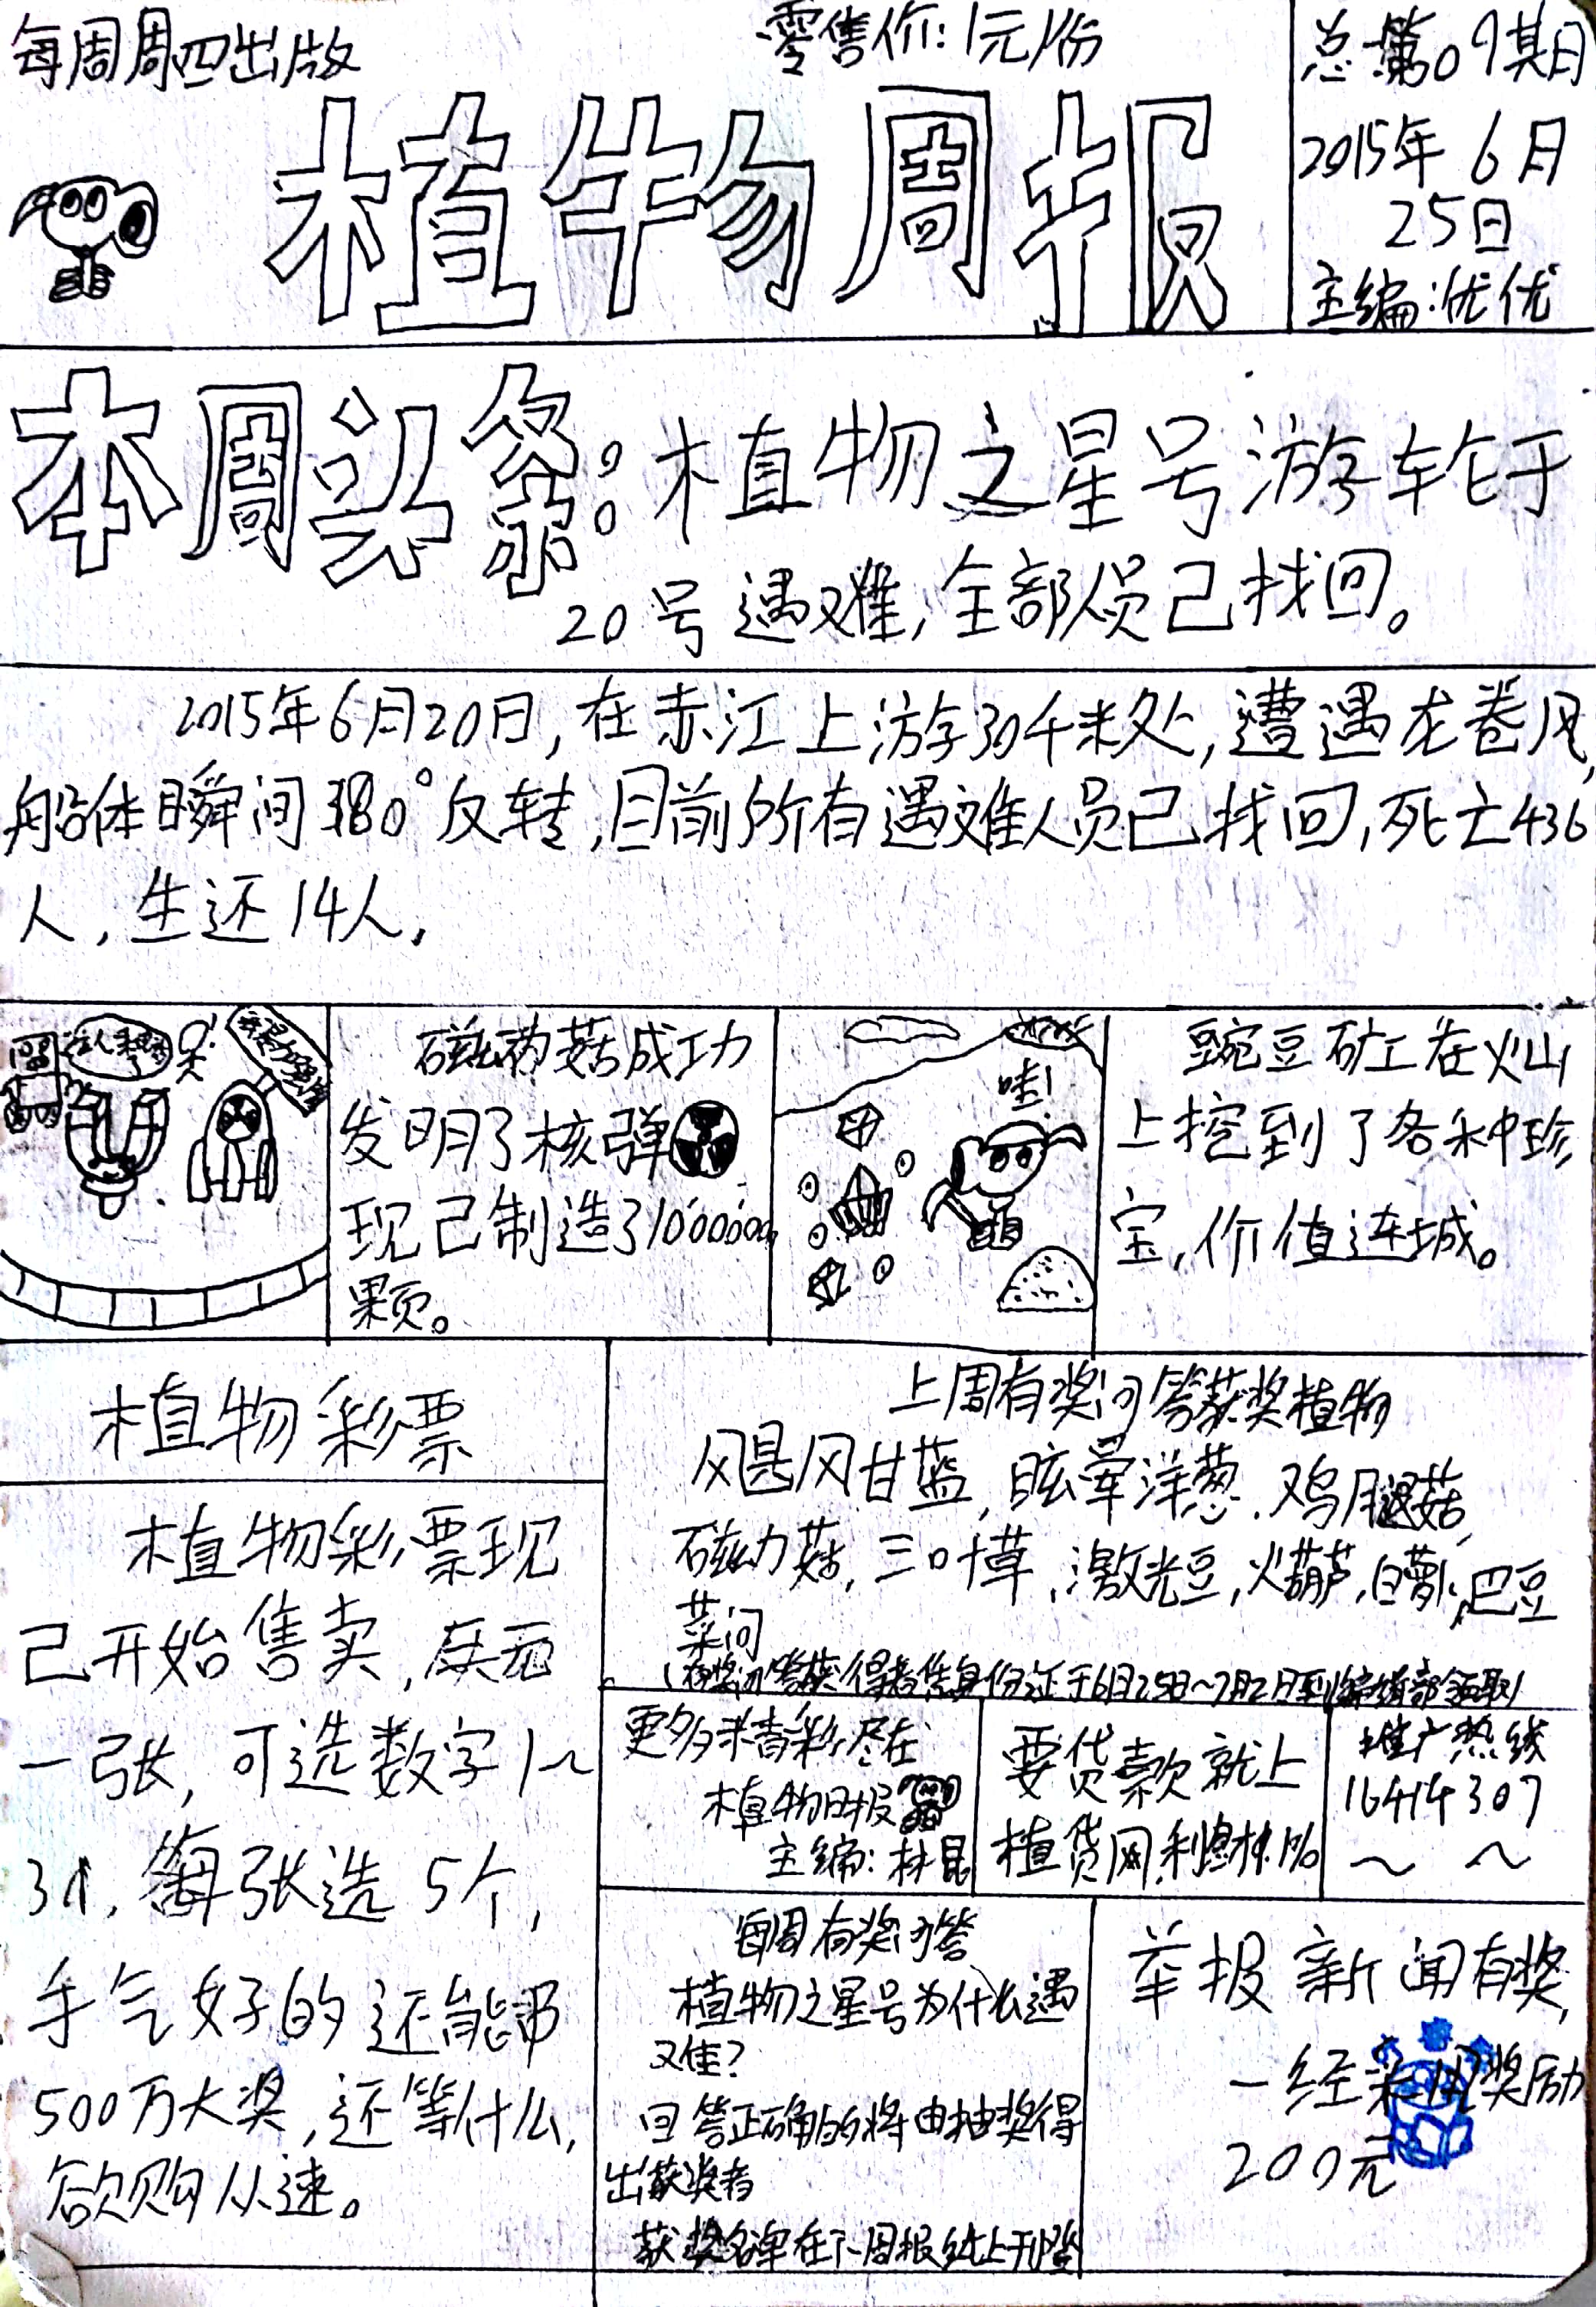 每周周四出版
零售价:1元/份
总第09期
2015年6月
25日
主编:优优
植物周报
本周头条:植物之星号游轮于
20号遇难,全部人员已找回。
2015年6月20日,在赤江上游30千米处,遭遇龙卷风,
船体瞬间180°反转,目前所有遇难人员已找回,死亡436
人,生还14人。
磁力菇成功
发明了核弹
现已制造了1000000
颗。
哇!
豌豆矿工在火山
上挖到了各种珍
宝,价值连城。
植物彩票
植物彩票现
已开始售卖,
一张,可选数字1~
31,每张选5个,
手气好的还能中
500万大奖,还等什么,
欲购从速。
上周有奖问答获奖植物
飓风甘蓝,眩晕洋葱.鸡腿菇,
磁力菇,三叶草,激光豆,火葫芦,白萝卜,巴豆
菜问
(有奖问答获得者凭身份证于6月25日~7月2日到编辑部领取)
更多精彩,尽在
植物日报
主编:林昆
要贷款就上
植贷网,利息
推广热线
16414307
~ ~
每周有奖问答
植物之星号为什么遇
难?
回答正确的将由抽奖得
出获奖者
获奖名单在下周报纸上刊登
举报新闻有奖,
一经采用奖励
200元